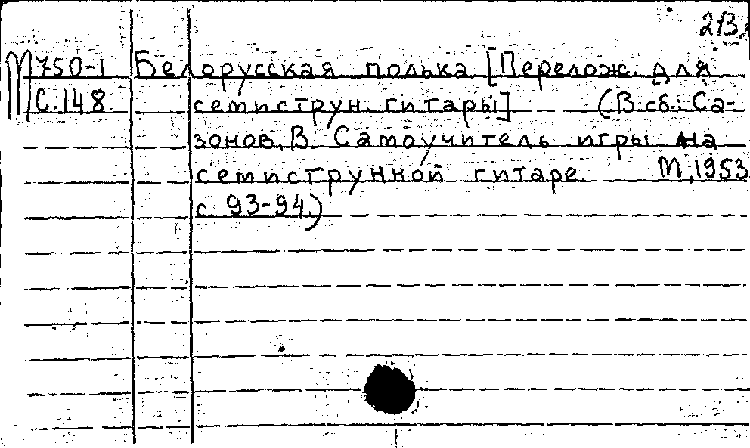 2/3.
M750-1 Белорусская полька [Перелож. для
С.148. семиструн. гитары] (В сб.: Са-
зонов, В. Самоучитель игры на
семиструнной гитаре. М, 1953
с. 93-94.)